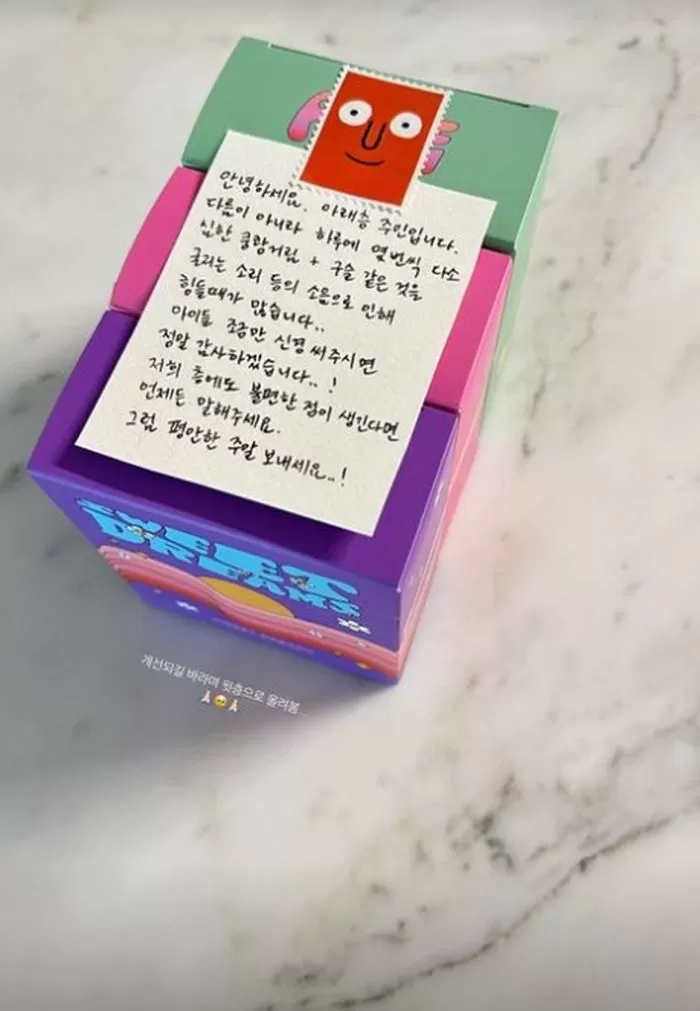 안녕하세요. 아래층 주인입니다.
다름이 아니라 하루에 몇번씩 다소
심한 쿵쾅거림 + 구슬 같은 것을
굴리는 소리 등의 소음으로 인해
힘들때가 많습니다..
아이들 조금만 신경써주시면
정말 감사하겠습니다..!
저희 층에도 불편한 점이 생긴다면
언제든 말해주세요.
그럼 평안한 주말 보내세요..!
SWEET
DREAMS
개선되길 바라며 윗층으로 올려봄
🙏🏻🥹🙏🏻